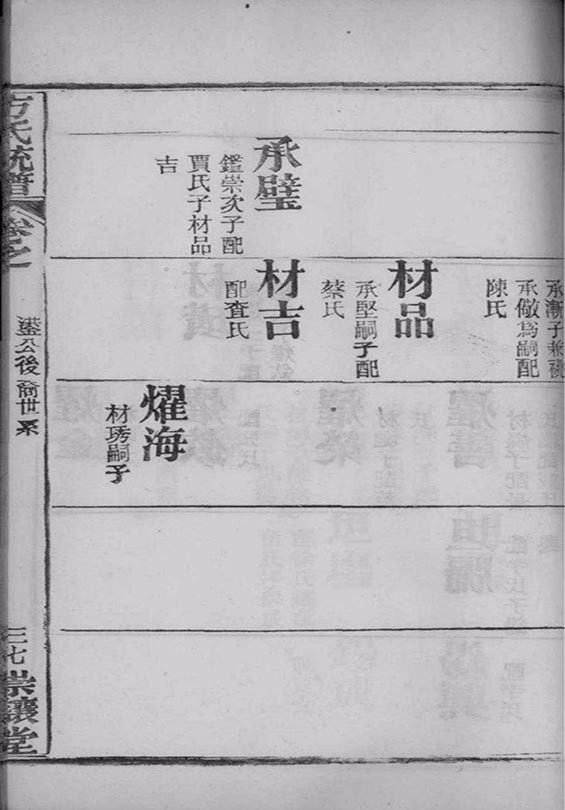 承璧
鑑崇次子配
賈氏子材品
吉
承漸子兼祧
承儆為嗣配
陳氏
材品
承堅嗣子配
蔡氏
材吉
配査氏
燿海
材琇嗣子
方氏統譜
卷之
鋈公後裔世系
三七
崇讓堂